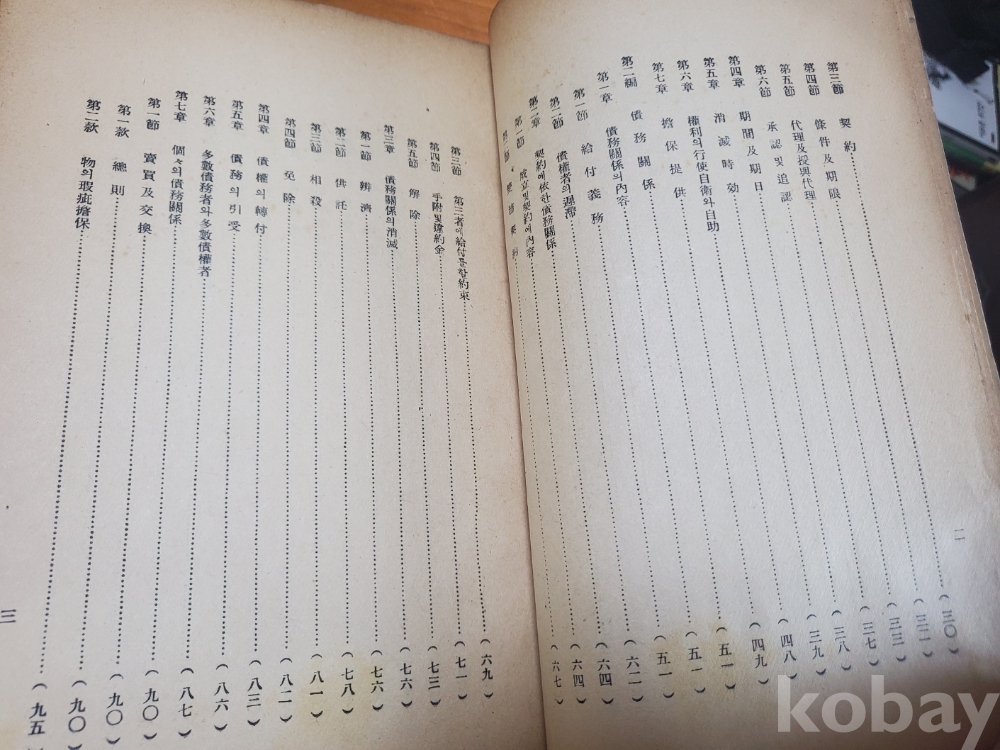 二
第三節 契約 (三〇)
第四節 條件及期限 (三二)
第五節 代理及授與代理 (三三)
第六節 承認및追認 (三七)
第四章 期間及期日 (三八)
第五章 消滅時効 (三九)
第六章 權利의行使自衛와自助 (四八)
第七章 擔保提供 (四九)
第二編 債務關係 (五一)
第一章 債務關係의內容 (五一)
第一節 給付義務 (五一)
第二節 債權者의遲滯 (六二)
第二章 契約에依한債務關係 (六四)
第一節 成立및契約에內容 (六四)
節 (六七)
第三節 第三者에給付를할約束 (六九)
第四節 手附및違約金 (七一)
第五節 解除 (七三)
第三章 債務關係의消滅 (七六)
第一節 辨濟 (七六)
第二節 供託 (七八)
第三節 相殺 (八一)
第四節 免除 (八二)
第四章 債權의轉付 (八三)
第五章 債務의引受 (八六)
第六章 多數債務者와多數債權者 (八七)
第七章 個々의債務關係 (九〇)
第一節 賣買及交換 (九〇)
第一款 總則 (九〇)
第二款 物의瑕疵擔保 (九五)
三
kobay